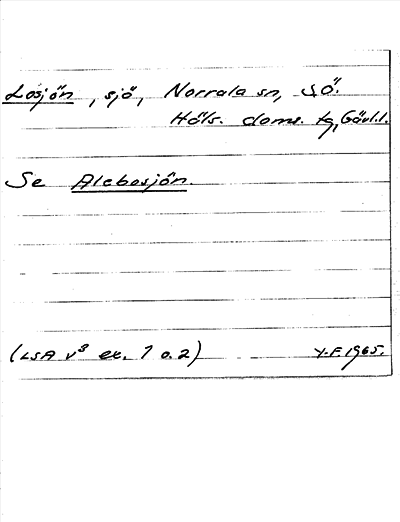 Losjön, sjö, Norrala sn, SÖ.
Häls. doms. tg, Gävl.l.
Se Alebosjön.
(LSA v³ ex. 1 o. 2) Y.F. 1965.